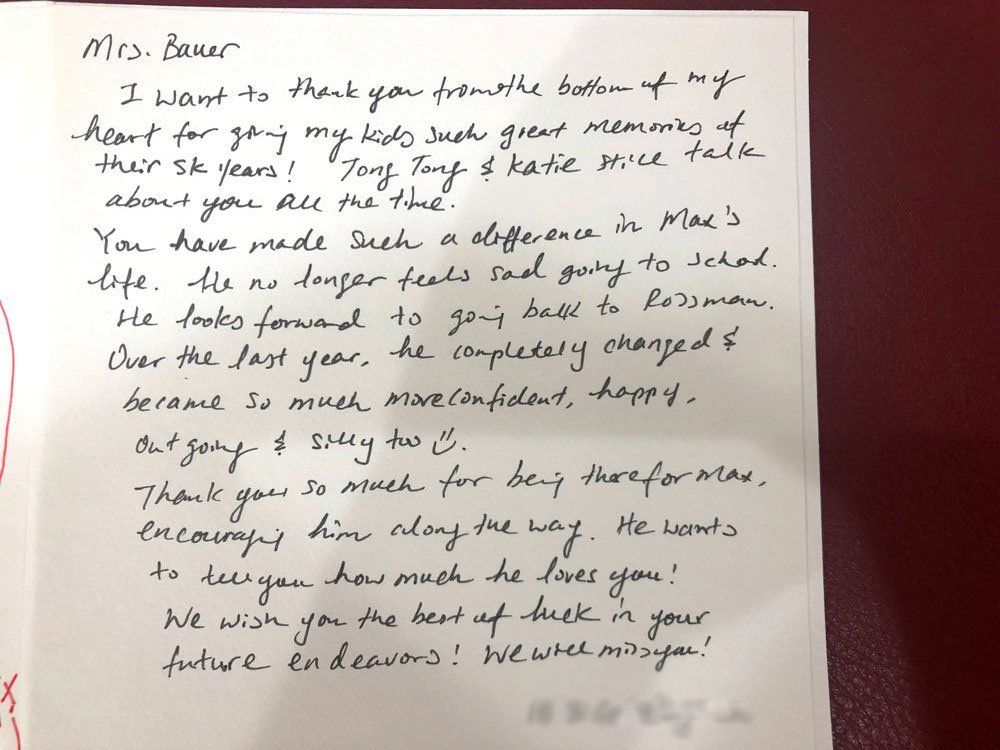 Mrs. Bauer
I want to thank you from the bottom of my
heart for giving my kids such great memories of
their SK years! Tong Tong & Katie still talk
about you all the time.
You have made such a difference in Max's
life. He no longer feels sad going to school.
He looks forward to going back to Rossman.
Over the last year, he completely changed &
became so much more confident, happy,
outgoing & silly too
Thank you so much for being there for Max,
encouraging him along the way. He wants
to tell you how much he loves you!
We wish you the best of luck in your
future endeavors! We will miss you!